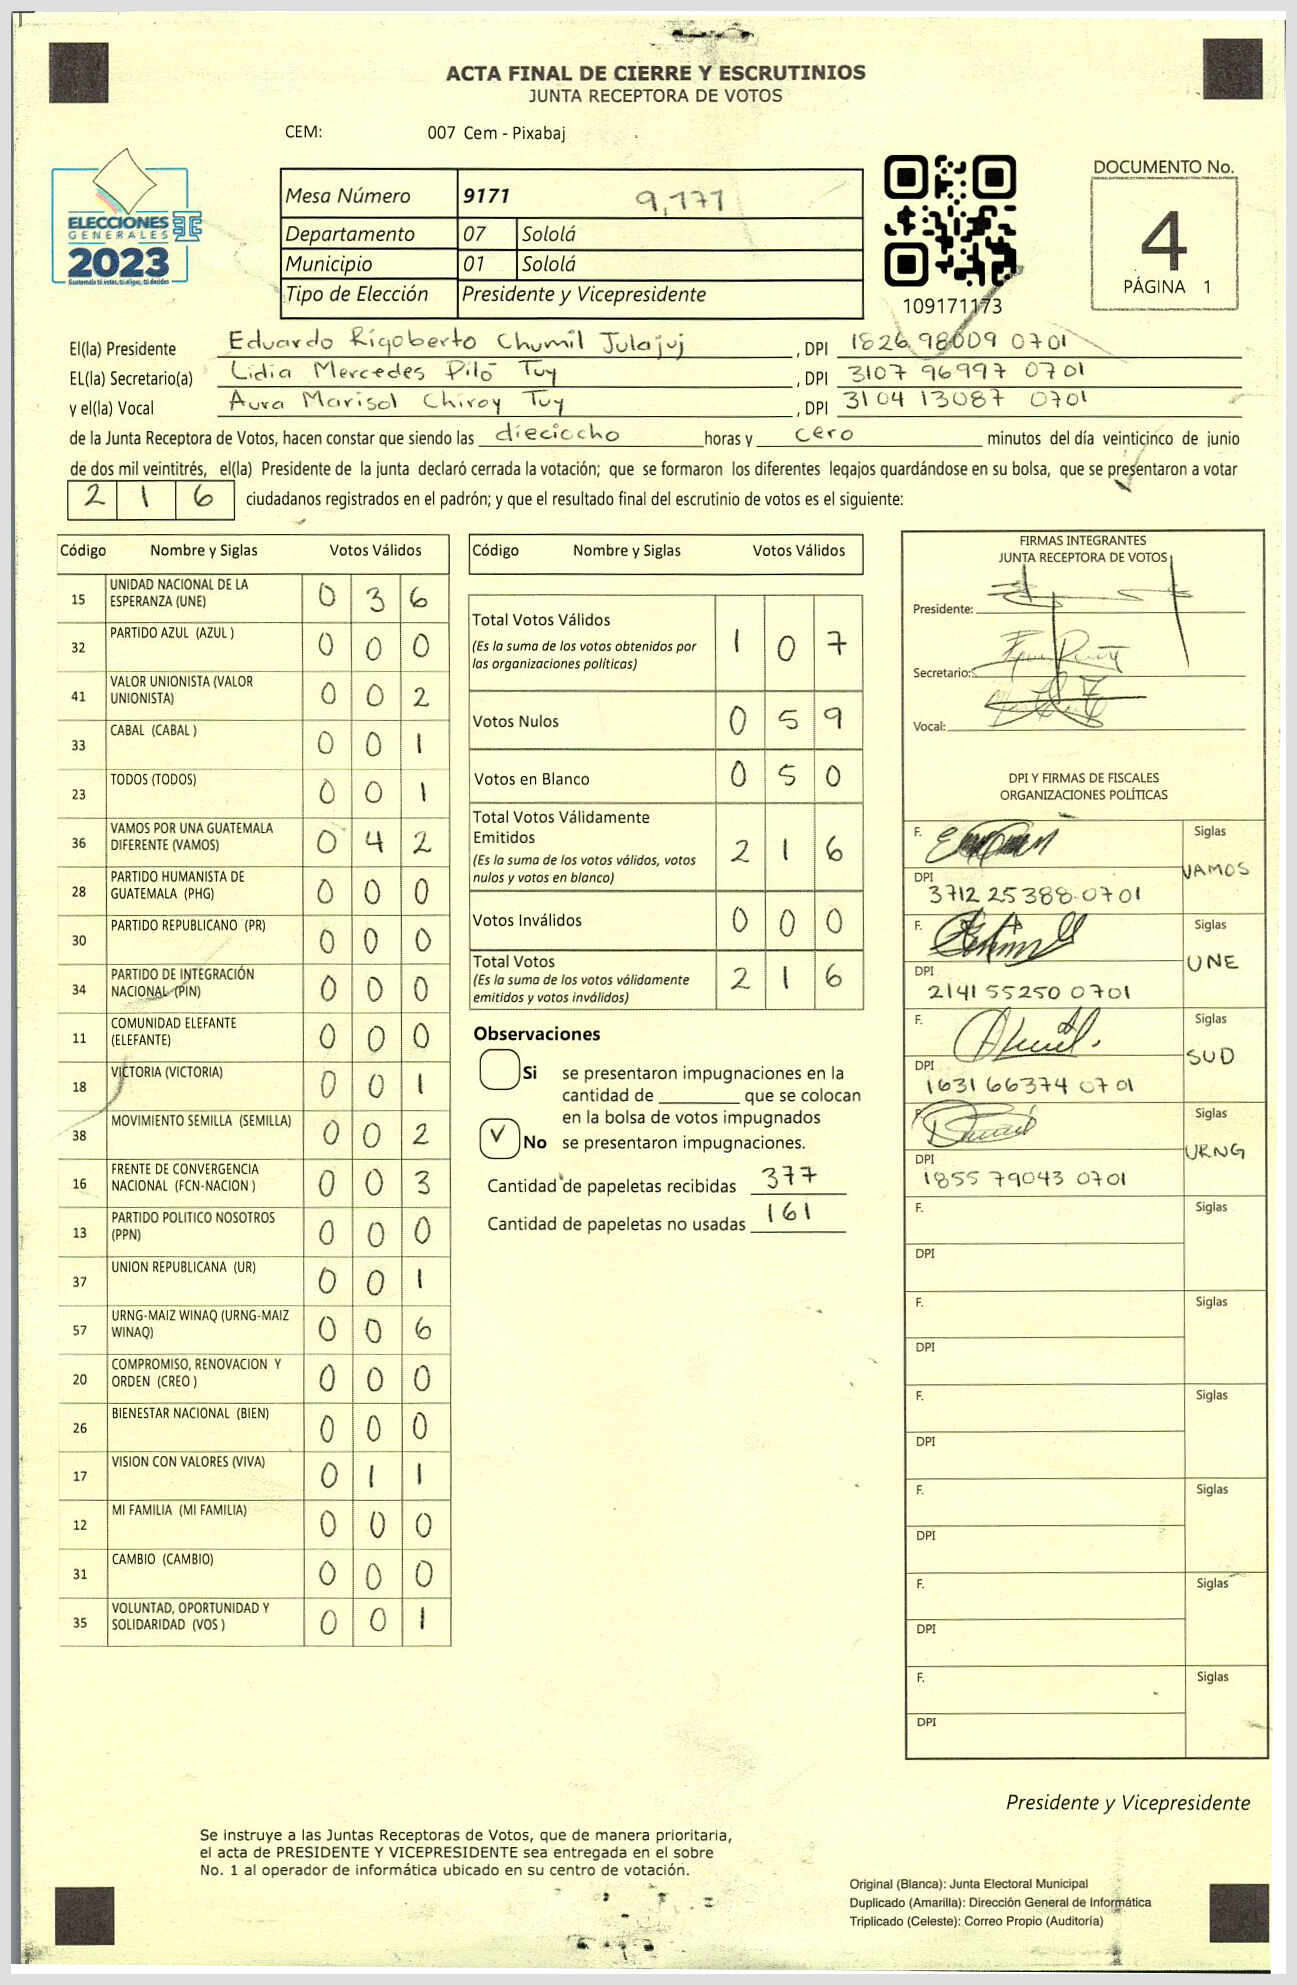 ACTA FINAL DE CIERRE Y ESCRUTINIOS
JUNTA RECEPTORA DE VOTOS
CEM: 007 Cem - Pixabaj
ELECCIONES
GENERALES
2023
Guatemala tú votas, tú eliges, tú decides
Mesa Número 9171 9,171
Departamento 07 Sololá
Municipio 01 Sololá
Tipo de Elección Presidente y Vicepresidente
109171173
DOCUMENTO No.
4
PÁGINA 1
El(la) Presidente Eduardo Rigoberto Chumil Julajuj , DPI 1826 98009 0701
EL(la) Secretario(a) Lidia Mercedes Piló Tuy , DPI 3107 96997 0701
y el(la) Vocal Aura Marisol Chiroy Tuy , DPI 3104 13087 0701
de la Junta Receptora de Votos, hacen constar que siendo las dieciocho horas y cero minutos del día veinticinco de junio
de dos mil veintitrés, el(la) Presidente de la junta declaró cerrada la votación; que se formaron los diferentes legajos guardándose en su bolsa, que se presentaron a votar
2 1 6 ciudadanos registrados en el padrón; y que el resultado final del escrutinio de votos es el siguiente:
Código Nombre y Siglas Votos Válidos
15 UNIDAD NACIONAL DE LA ESPERANZA (UNE) 0 3 6
32 PARTIDO AZUL (AZUL ) 0 0 0
41 VALOR UNIONISTA (VALOR UNIONISTA) 0 0 2
33 CABAL (CABAL ) 0 0 1
23 TODOS (TODOS) 0 0 1
36 VAMOS POR UNA GUATEMALA DIFERENTE (VAMOS) 0 4 2
28 PARTIDO HUMANISTA DE GUATEMALA (PHG) 0 0 0
30 PARTIDO REPUBLICANO (PR) 0 0 0
34 PARTIDO DE INTEGRACIÓN NACIONAL (PIN) 0 0 0
11 COMUNIDAD ELEFANTE (ELEFANTE) 0 0 0
18 VICTORIA (VICTORIA) 0 0 1
38 MOVIMIENTO SEMILLA (SEMILLA) 0 0 2
16 FRENTE DE CONVERGENCIA NACIONAL (FCN-NACION ) 0 0 3
13 PARTIDO POLITICO NOSOTROS (PPN) 0 0 0
37 UNION REPUBLICANA (UR) 0 0 1
57 URNG-MAIZ WINAQ (URNG-MAIZ WINAQ) 0 0 6
20 COMPROMISO, RENOVACION Y ORDEN (CREO ) 0 0 0
26 BIENESTAR NACIONAL (BIEN) 0 0 0
17 VISION CON VALORES (VIVA) 0 1 1
12 MI FAMILIA (MI FAMILIA) 0 0 0
31 CAMBIO (CAMBIO) 0 0 0
35 VOLUNTAD, OPORTUNIDAD Y SOLIDARIDAD (VOS ) 0 0 1
Código Nombre y Siglas Votos Válidos
Total Votos Válidos 1 0 7
(Es la suma de los votos obtenidos por
las organizaciones políticas)
Votos Nulos 0 5 9
Votos en Blanco 0 5 0
Total Votos Válidamente
Emitidos 2 1 6
(Es la suma de los votos válidos, votos
nulos y votos en blanco)
Votos Inválidos 0 0 0
Total Votos 2 1 6
(Es la suma de los votos válidamente
emitidos y votos inválidos)
Observaciones
Si se presentaron impugnaciones en la
cantidad de ________ que se colocan
en la bolsa de votos impugnados
No se presentaron impugnaciones.
Cantidad de papeletas recibidas 377
Cantidad de papeletas no usadas 161
FIRMAS INTEGRANTES
JUNTA RECEPTORA DE VOTOS
Presidente:
Secretario:
Vocal:
DPI Y FIRMAS DE FISCALES
ORGANIZACIONES POLÍTICAS
F. Siglas
VAMOS
DPI
3712 25388 0701
F. Siglas
UNE
DPI
2141 55250 0701
F. Siglas
SUD
DPI
1631 66374 0701
F. Siglas
URNG
DPI
1855 79043 0701
F. Siglas
DPI
F. Siglas
DPI
F. Siglas
DPI
F. Siglas
DPI
F. Siglas
DPI
F. Siglas
DPI
Presidente y Vicepresidente
Se instruye a las Juntas Receptoras de Votos, que de manera prioritaria,
el acta de PRESIDENTE Y VICEPRESIDENTE sea entregada en el sobre
No. 1 al operador de informática ubicado en su centro de votación.
Original (Blanca): Junta Electoral Municipal
Duplicado (Amarilla): Dirección General de Informática
Triplicado (Celeste): Correo Propio (Auditoría)